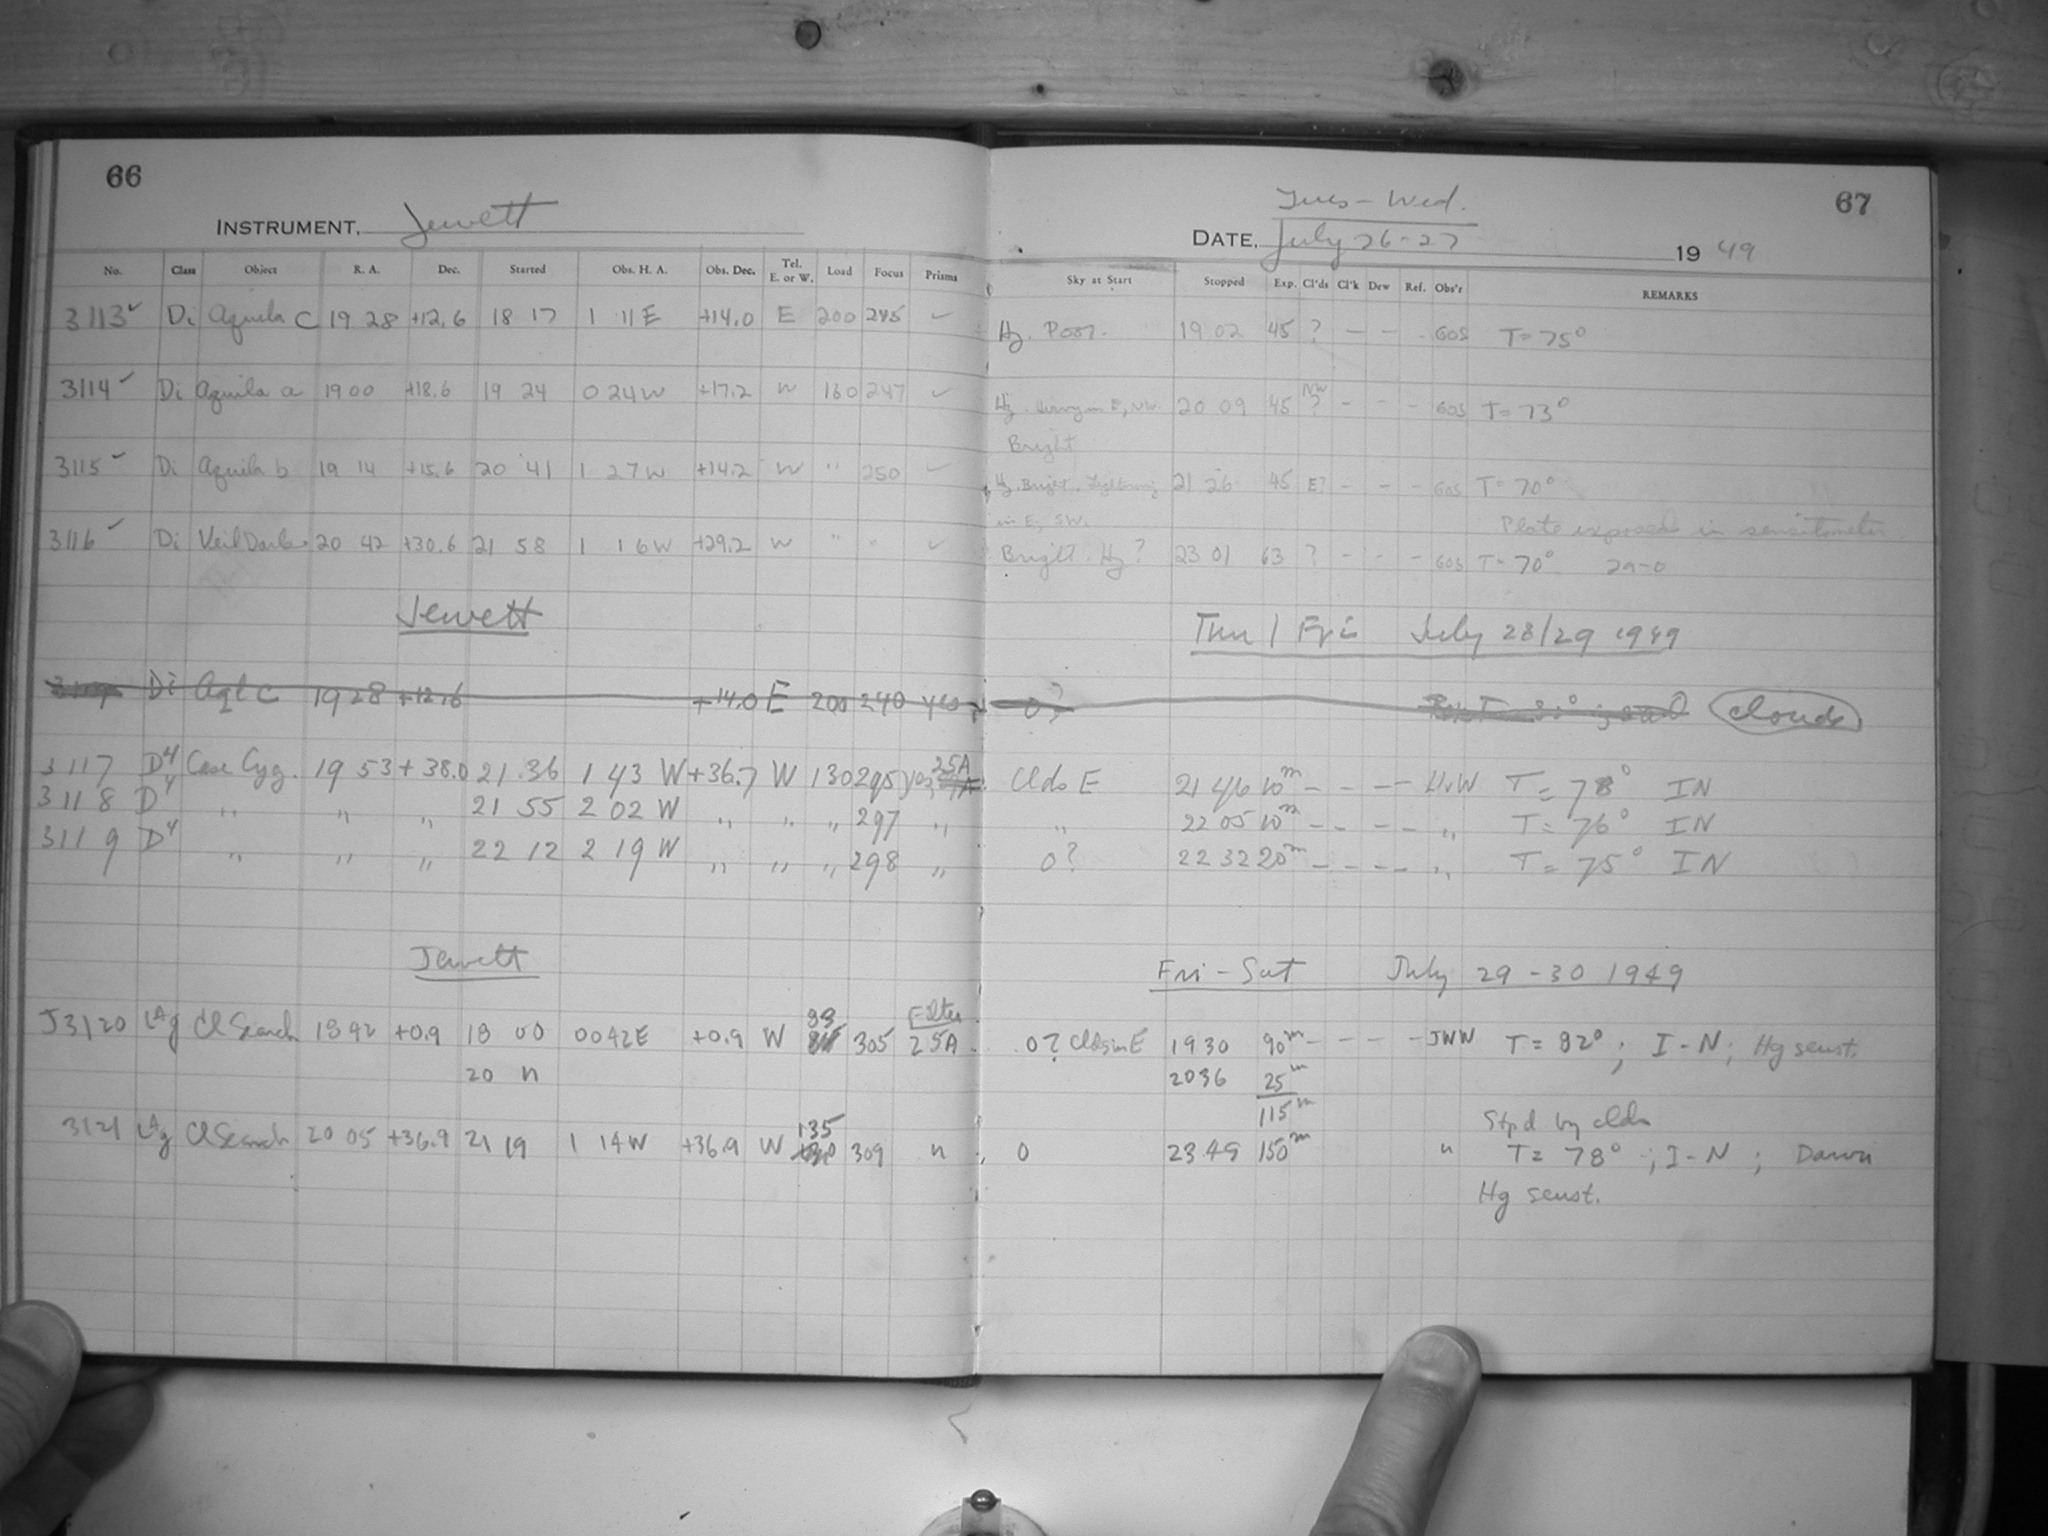 66
INSTRUMENT. Jewett
No. Class Object R. A. Dec. Started Obs. H. A. Obs. Dec. Tel. E. or W. Load Focus Prisms
3113 ✓ Di Aquila C 19 28 +12.6 18 17 1 11 E +14.0 E 200 245 ✓
3114 ✓ Di Aquila a 19 00 +18.6 19 24 0 24 W +17.2 W 160 247 ✓
3115 ✓ Di Aquila b 19 14 +15.6 20 41 1 27 W +14.2 W " 250 ✓
3116 ✓ Di Veil Dark 20 42 +30.6 21 58 1 16 W +29.2 W " " ✓
Jewett
Di Aql C 19 28 +12.6 +14.0 E 200 240 yes
3117 D4 Case Cyg. 19 53 +38.0 21 36 1 43 W +36.7 W 130 295 yes, 25A
3118 D4 " " " 21 55 2 02 W " " " 297 "
3119 D4 " " " 22 12 2 19 W " " " 298 "
Jewett
Filter
J3120 LAg Cl Search 18 42 +0.9 18 00 0042E +0.9 W 305 25A
20 11
3121 LAg Cl Search 20 05 +36.9 21 19 1 14 W +36.9 W 135 309 "
67
Tues - Wed.
DATE. July 26-27 1949
Sky at Start Stopped Exp. Cl'ds Cl'k Dew Ref. Obs'r REMARKS
Hz. Poor. 19 02 45 ? - - - GOS T = 75°
Hz. in E, NW. 20 09 45 NW ? - - - GOS T = 73°
Bright
Hz. Bright. Lightning 21 26 45 E? - - - GOS T = 70°
in E, SW. Plate exposed in sensitometer.
Bright. Hz? 23 01 63 ? - - - GOS T = 70° 2a-0
Thu / Fri July 28/29 1949
0? clouds
Clds E 21 46 10m - - - - T = 78° IN
" 22 05 10m - - - - " T = 76° IN
0? 22 32 20m - - - - " T = 75° IN
Fri - Sat July 29 - 30 1949
0? Clds in E 1930 90m - - - - JWW T = 82° ; I-N ; Hg senst.
2036 25m
115m
Stpd by clds
0 23 49 150m " T = 78° ; I-N ; Dawn
Hg senst.